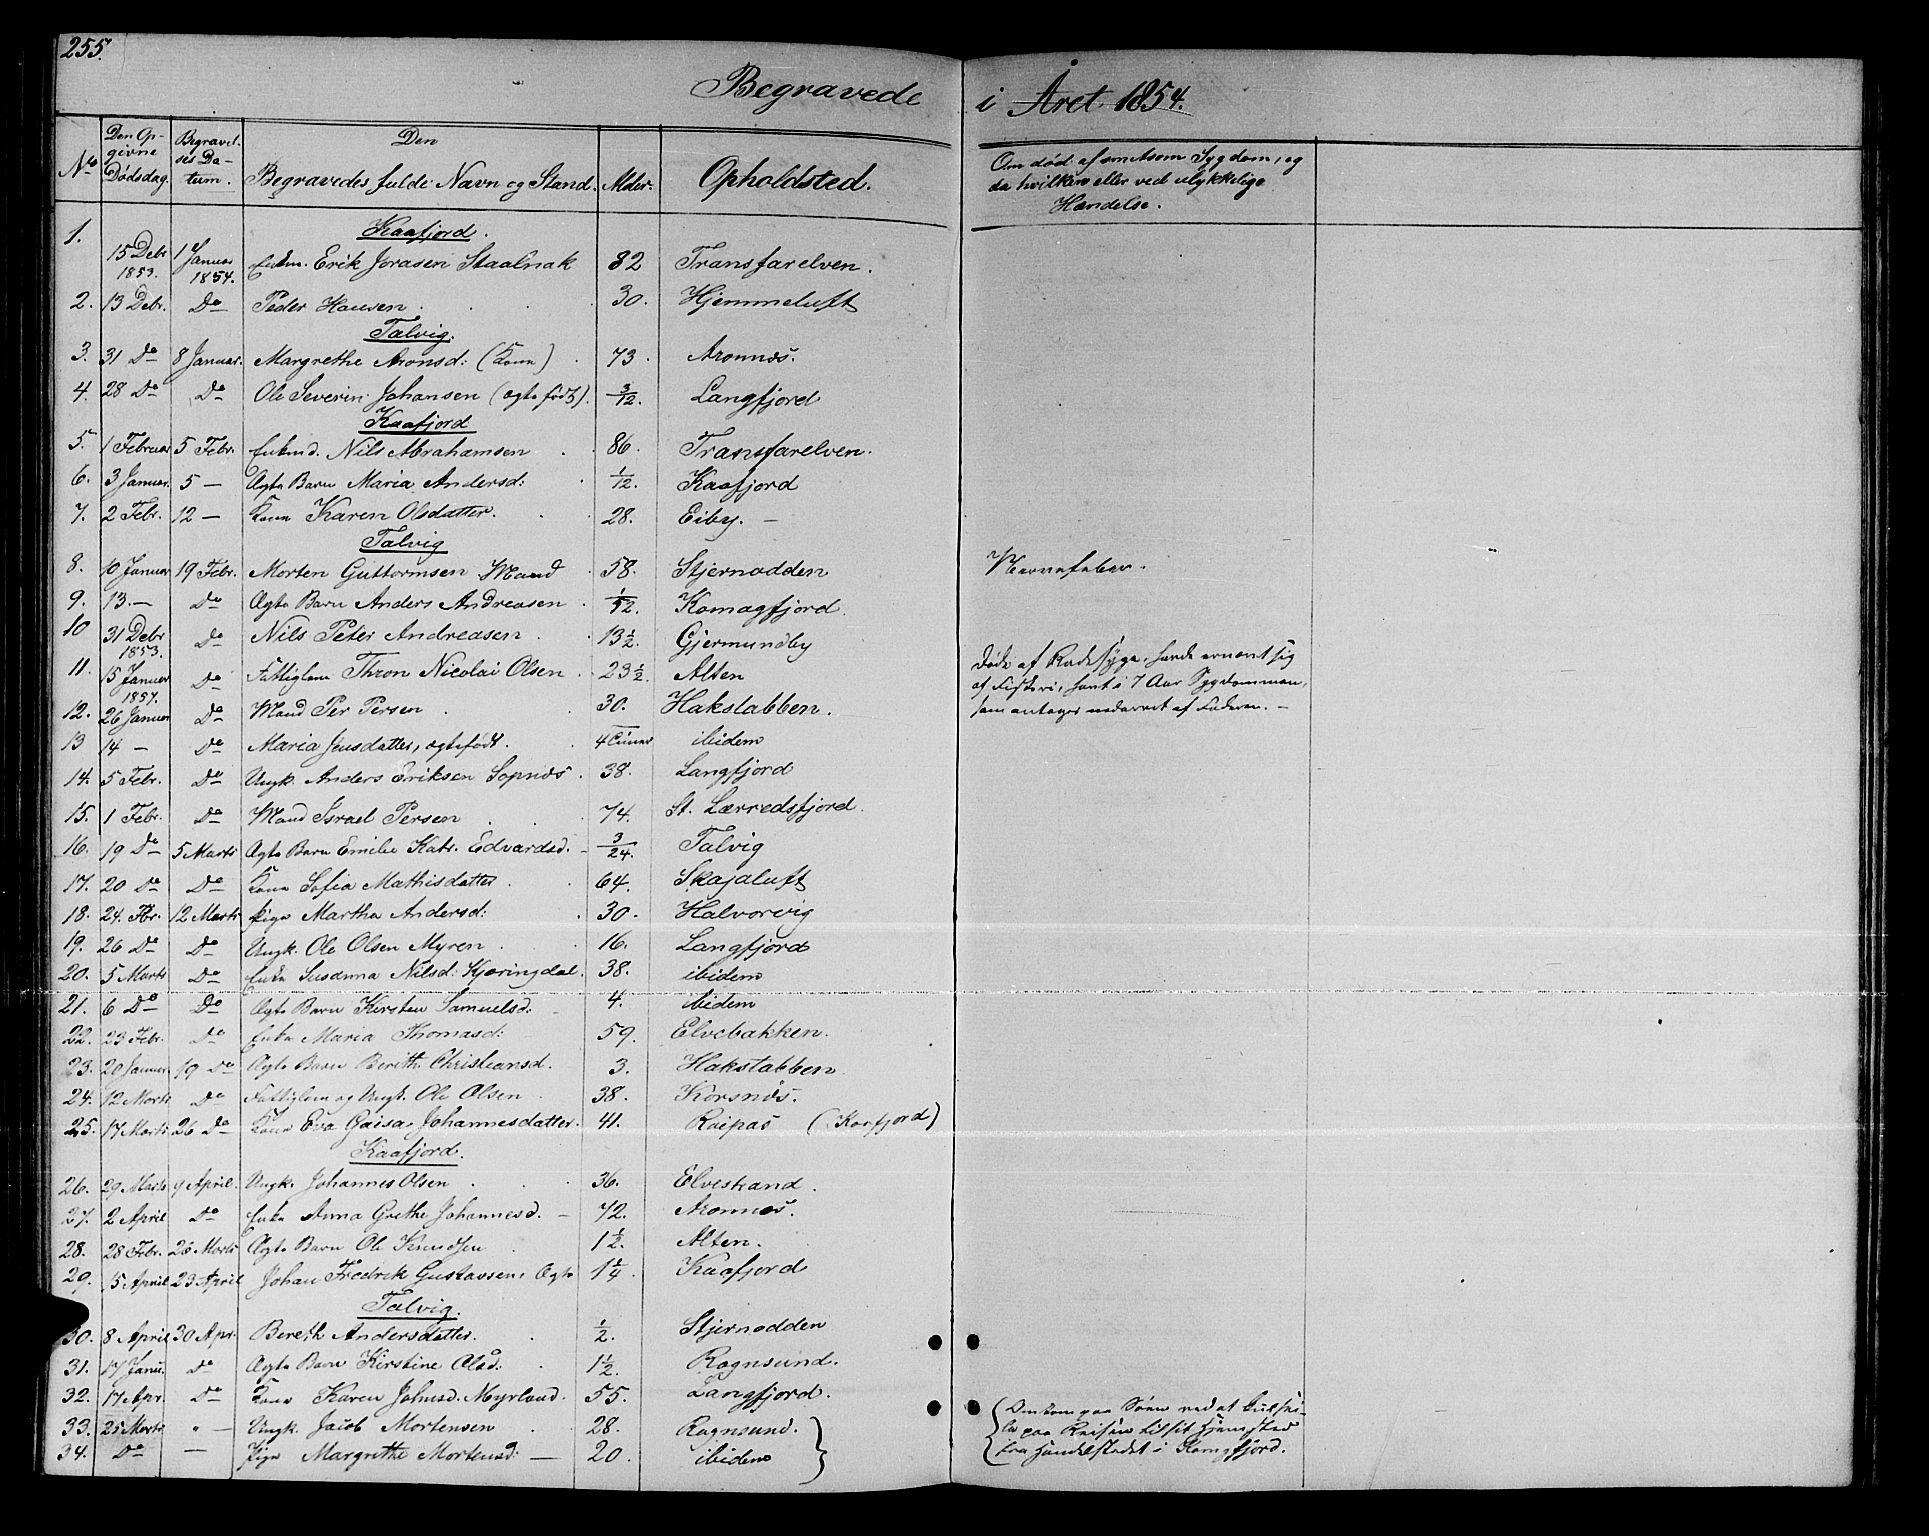 255.
Begravede i Året 1854.
No
Den Opgivne Dødsdag.
Begravelses Datum.
Den Begravedes fulde Navn og Stand.
Alder.
Opholdsted.
Om død af smitsom Sygdom, og
da hvilken eller ved ulykkelig
Hændelse.
Kaafjord.
1. 15 Debr 1853. 1 Januar 1854. Enkm. Erik Jorasen Staalnak 82 Transfarelven.
2. 13 Debr. Do Peder Hansen. 30. Hjemmeluft
Talvig.
3. 31 Do 8 Januar. Margrethe Aronsd: (Kone) 73. Aronnæs.
4. 28 Do Do Ole Severin Johansen (ægte født). 3/12. Langfjord
Kaafjord
5. 1 Februar 5 Febr. Enkmd. Nils Abrahamsen 86. Transfarelven.
6. 3 Januar. 5 — Ægte Barn Maria Andersd: 1/12. Kaafjord
7. 2 Febr. 12 — Kone Karen Olsdatter. 28. Eiby. —
Talvig
8. 10 Januar 19 Febr. Morten Guttormsen Mand 58. Stjernodden Nervefeber.
9. 13. — Do Ægte Barn Anders Andreasen. 1/52. Komagfjord.
10 31 Debr 1853. Do Nils Peter Andreasen 13 1/2. Gjermundby
11. 15 Januar 1857. Do Fattiglem Thron Nicolai Olsen 23 1/2. Alten Døde af Radesyge, havde ernært sig
af Fiskeri, havt i 7 Aar Sygdommen,
som antages nedarvet af Faderen. —
12. 26 Januar Do Mand Per Persen 30. Hakstabben.
13 14 — Do Maria Jensdatter, ægtefødt. 4 Timer ibidem
14. 5 Febr. Do Ungk. Anders Eriksen Sopnæs. 38. Langfjord
15. 1 Febr. Do Mand Israel Persen 74. St. Lærredsfjord.
16. 19 Do 5 Marts Ægte Barn Emilie Katr. Edvardsd. 3/24. Talvig
17. 20 Do Do Kone Sofia Mathisdatter 64. Skajaluft
18. 24. Fbr. 12 Marts Pige Martha Andersd: 30. Halvorvig
19. 26 Do Do Ungk. Ole Olsen Myren. 16. Langfjord
20. 5 Marts Do Enke Susanna Nilsd: Kjæringdal. 38. ibidem
21. 6 Do Do Ægte Barn Kirsten Samuelsd: 4. ibidem
22. 23 Febr. Do Enke Maria Thomasd: 59. Elvebakken.
23. 20 Januar 19 Do Ægte Barn Berith Christiansd. 3. Hakstabben
24. 12 Marts Do Fattiglem og Ungk. Ole Olsen 38. Korsnæs.
25. 17 Marts 26 Do Kone Eva Gaisa Johannesdatter. 41. Raipas (Kaafjord)
Kaafjord.
26. 29 Marts 9 April. Ungk. Johannes Olsen 36. Elvestrand.
27. 2 April Do Enke Anna Grethe Johannesd. — 72. Aronnæs.
28. 28 Febr. 26 Marts Ægte Barn Ole Knudsen 1 1/2. Alten.
29. 15 April 23 April Johan Fredrik Gustavsen, Ægte 1 1/4. Kaafjord
Talvig.
30. 8 April 30 Apr. Bereth Andersdatter. 1/2. Stjernodden
31. 17 Janu. Do Ægte Barn Kirstine Olsd: 1 1/2. Rognsund.
32. 17 Apr. Do Kone Karen Johnsd. Myrland. 55. Langfjord.
33. 25 Marts " — Ungk. Jacob Mortensen 28. Rognsund.
34. Do — Pige Margrethe Mortensd: — 20. ibidem
Omkom paa Søen ved at kulsei-
le paa Reisen til sit Hjemsted
fra Handelstedet i Komgfjord.